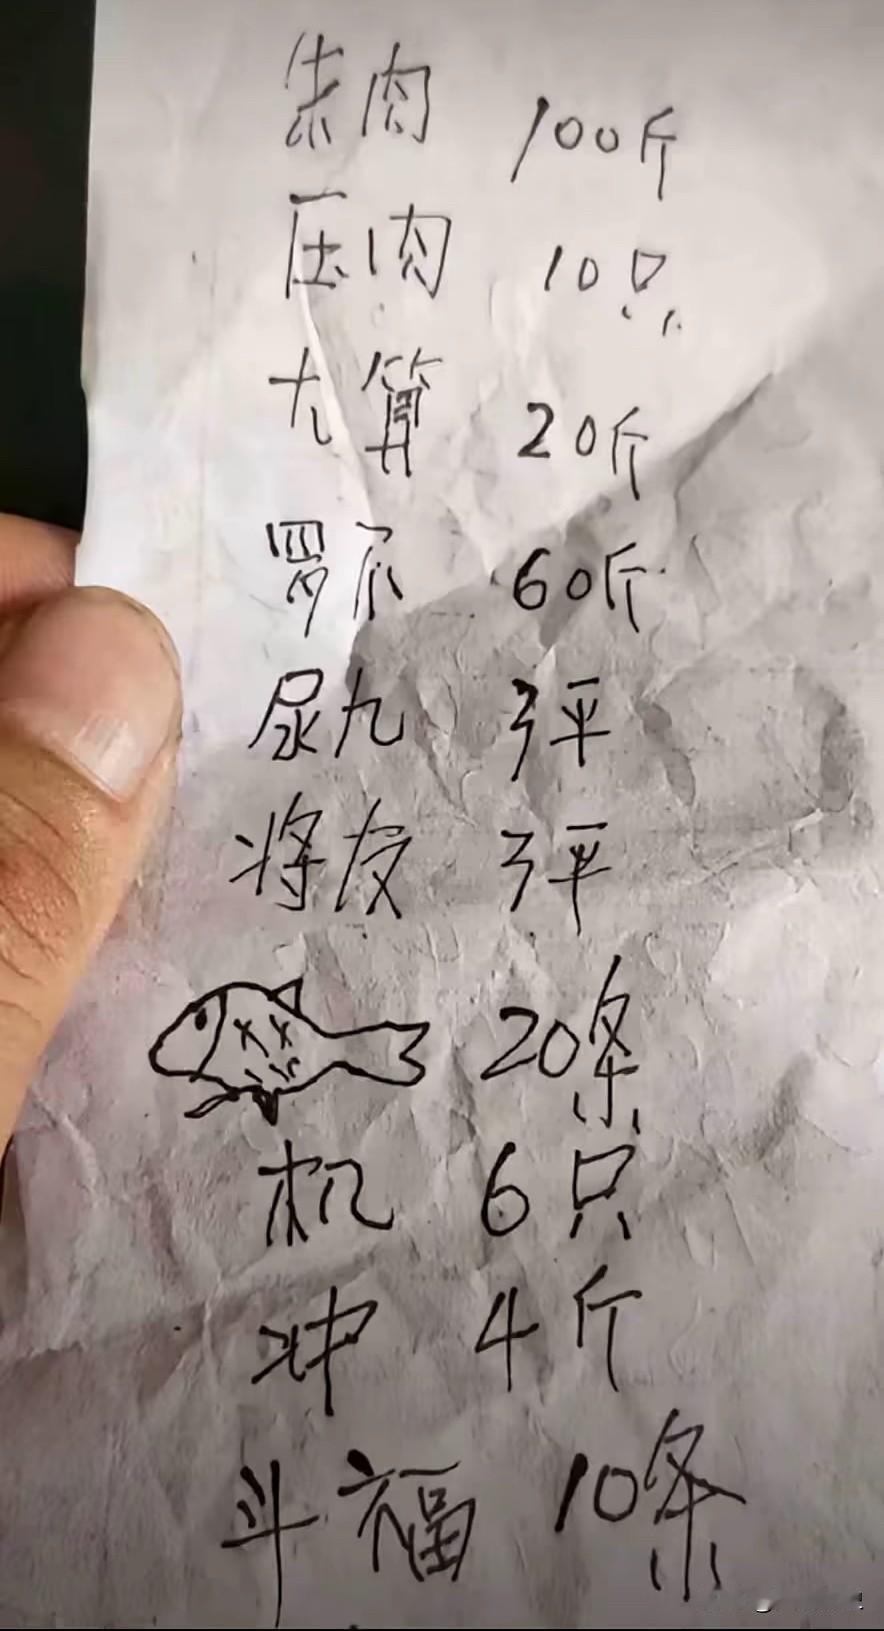 朱肉 100斤
压肉 10只
十九算 20斤
罗不 60斤
尿九 3坪
将友 3坪
20条
机 6只
冲 4斤
斗福 10条